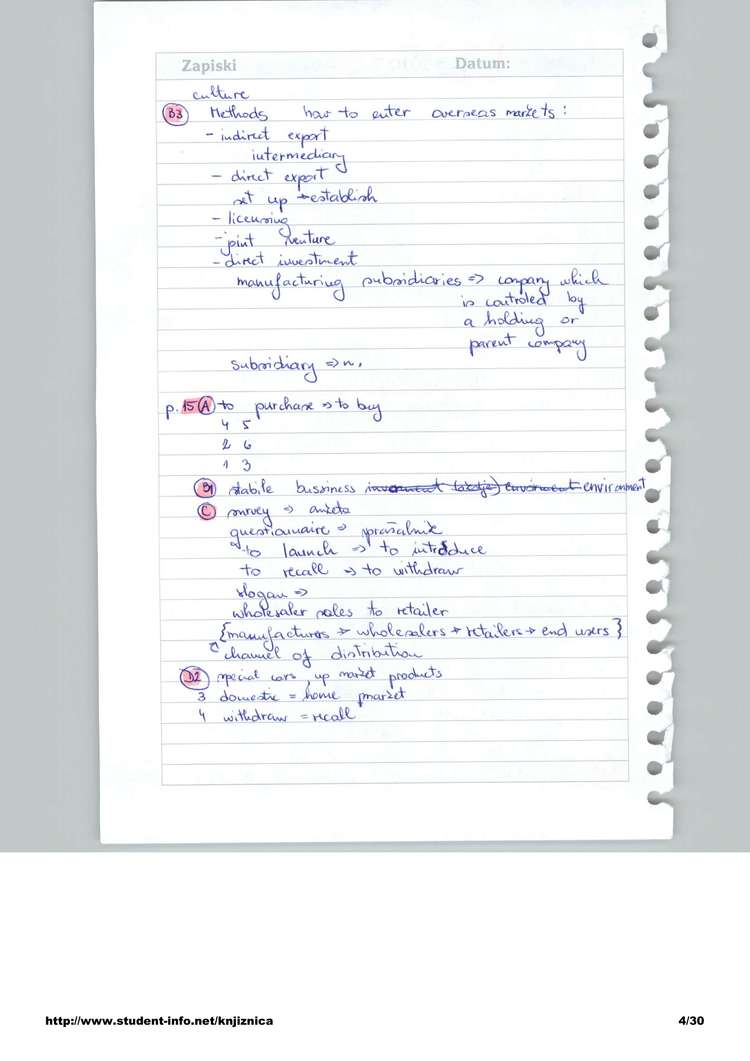 Zapiski Datum:
culture
B3 Methods how to enter overseas markets:
- indirect export
intermediary
- direct export
set up → establish
- licensing
- joint venture
- direct investment
manufacturing subsidiaries => company which
is controled by
a holding or
parent company
subsidiary => n.
p. 15 A to purchase => to buy
4 5
2 6
1 3
B1 stabile bussiness environment
C survey => anketa
questionnaire => vprašalnik
to launch => to introduce
to recall => to withdraw
slogan =>
wholesaler sales to retailer
{manufacturers → wholesalers → retailers → end users}
channel of distribution
D2 special cars, up market products
3 domestic = home market
4 withdraw = recall
http://www.student-info.net/knjiznica 4/30